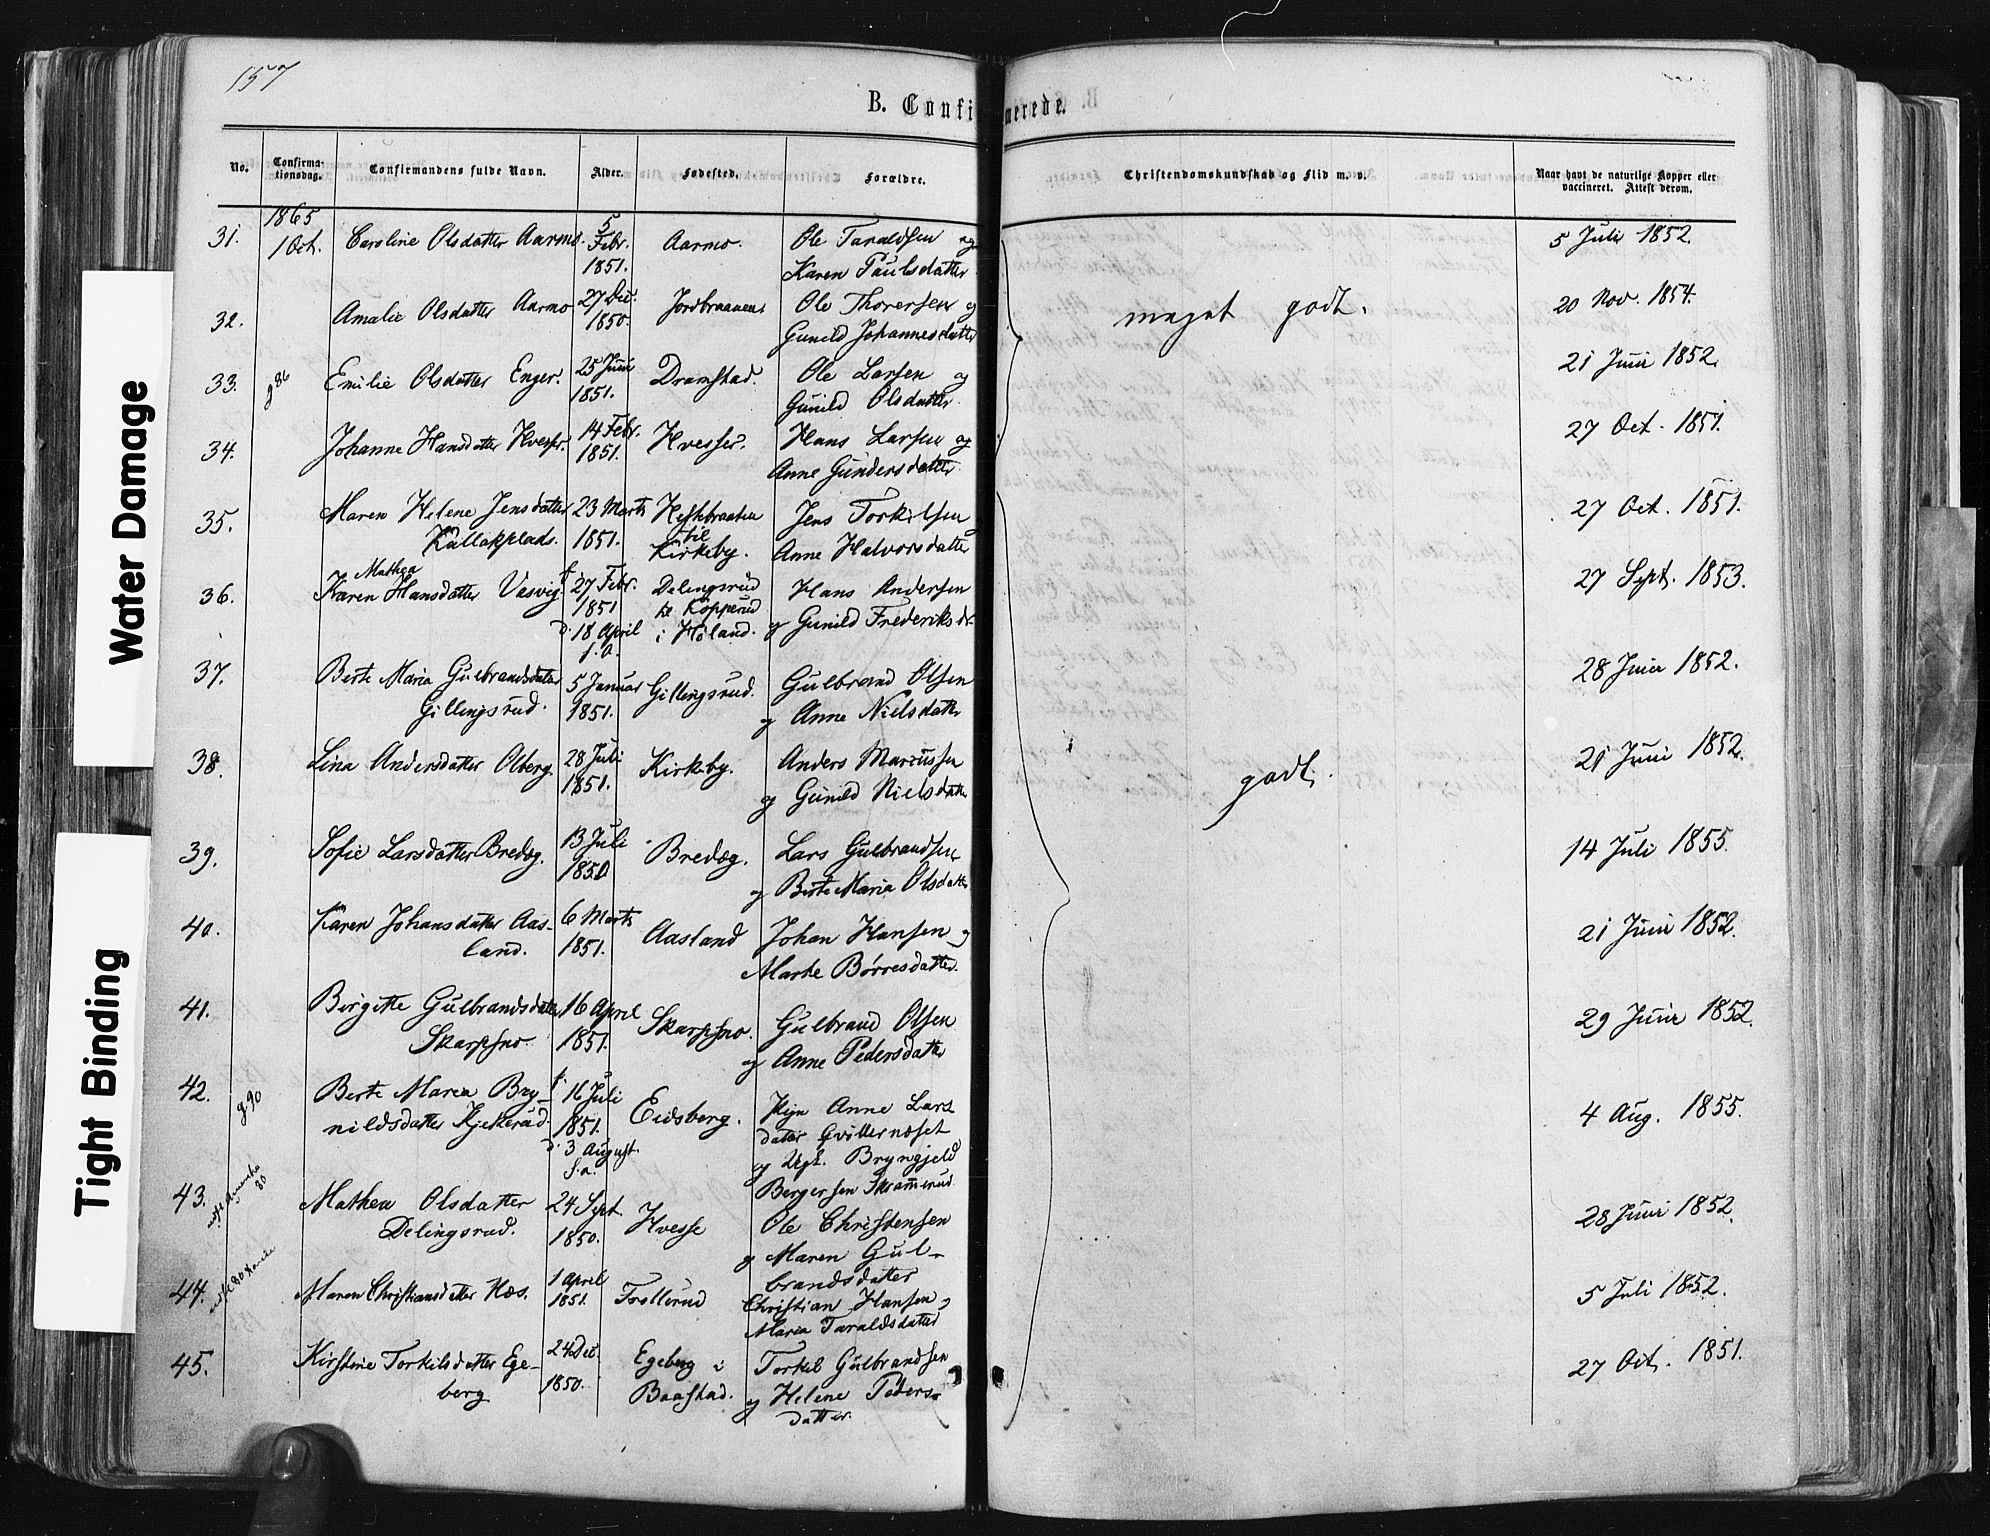 157
B. Confi
merede.
No.
Confirma-
tionsdag.
Confirmandens fulde Navn.
Alder.
Fødested.
Forældre.
Christendomskundskab og Flid m. v.
Naar havt de naturlige Kopper eller
vaccineret. Attest derom.
Water Damage
Tight Binding
1865
31. 1 Oct. Caroline Olsdatter Aarmo. 5 Febr. 1851. Aarmo. Ole Taraldsen og
Karen Paulsdatter
5 Juli 1852.
32. Amalie Olsdatter Aarmo 27 Dec. 1850. Jordbraaten. Ole Thoresen og
Gunild Johannesdatter
meget godt.
20 Nov. 1854.
33. g 86 Emilie Olsdatter Enger. 25 Juni 1851. Dramstad. Ole Larsen og
Gunild Olsdatter
21 Juni 1852.
34. Johanne Hansdatter Hvesser. 14 Febr. 1851. Hvesser. Hans Larsen og
Anne Gundersdatter
27 Oct. 1851.
35. Maren Helene Jensdatter 23 Marts Hestebraaten Jens Torkilsen
Kullakplads. 1851. til Kirkeby. Anne Halvorsdatter
27 Oct. 1851.
Mathea
36. Karen Hansdatter Vasvig f. 27 Febr. Delingsrud Hans Andersen
1851 til Kopperud
d. 18 April i Høland. og Gunild Frederiksdr.
s. a.
27 Sept. 1853.
37. Berte Maria Gulbrandsdatter 5 Januar Gillingsrud. Gulbrand Olsen
Gillingsrud. 1851. og Anne Nielsdatter
28 Juni 1852.
38. Lina Andersdatter Olberg. 28 Juli Kirkeby. Anders Marcussen
1851. og Gunild Nielsdatter
godt.
21 Juni 1852.
39. Sofie Larsdatter Bredeg. 13 Juli Bredeg. Lars Gulbrandsen
1850 og Berte Maria Olsdatter
14 Juli 1855.
40. Karen Johansdatter Aas- 6 Marts Aasland Johan Hansen og
land. 1851. Marthe Børresdatter.
21 Juni 1852.
41. Birgitte Gulbrandsdatter 16 April Skarpsno. Gulbrand Olsen
Skarpsno. 1851. og Anne Pedersdatter
29 Juni 1852.
42. g. 90 Berte Maria Bry- f. 16 Juli Eidsberg. Pige Anne Lars
nildsdatter Kjekerud. 1851. datter
d. 3 August. og Ungk. Bryngjeld
s. a. Bergersen Skammerud
4 Aug. 1855.
43. Mathea Olsdatter 24 Sept Hvesse Ole Christensen
Delingsrud. 1850. og Maren Gul-
brandsdatter
28 Juni 1852.
44. Maren Christiansdatter Næs. 1 April Trollerud Christian Hansen og
1851. Maria Taraldsdatter
5 Juli 1852.
45. Kirstine Torkilsdatter Ege- 24 Dec. Egeberg i Torkil Gulbrandsen
berg 1850. Baastad. og Helene Peders-
datter.
27 Oct. 1851.